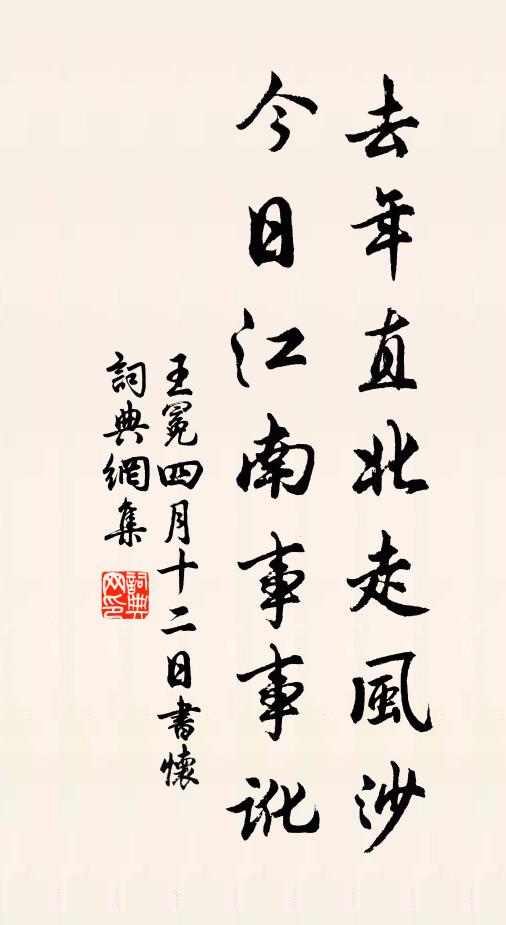 去年直北走風沙
今日江南事事訛
王冕四月十二日書懷
詞典網集
詞典网印